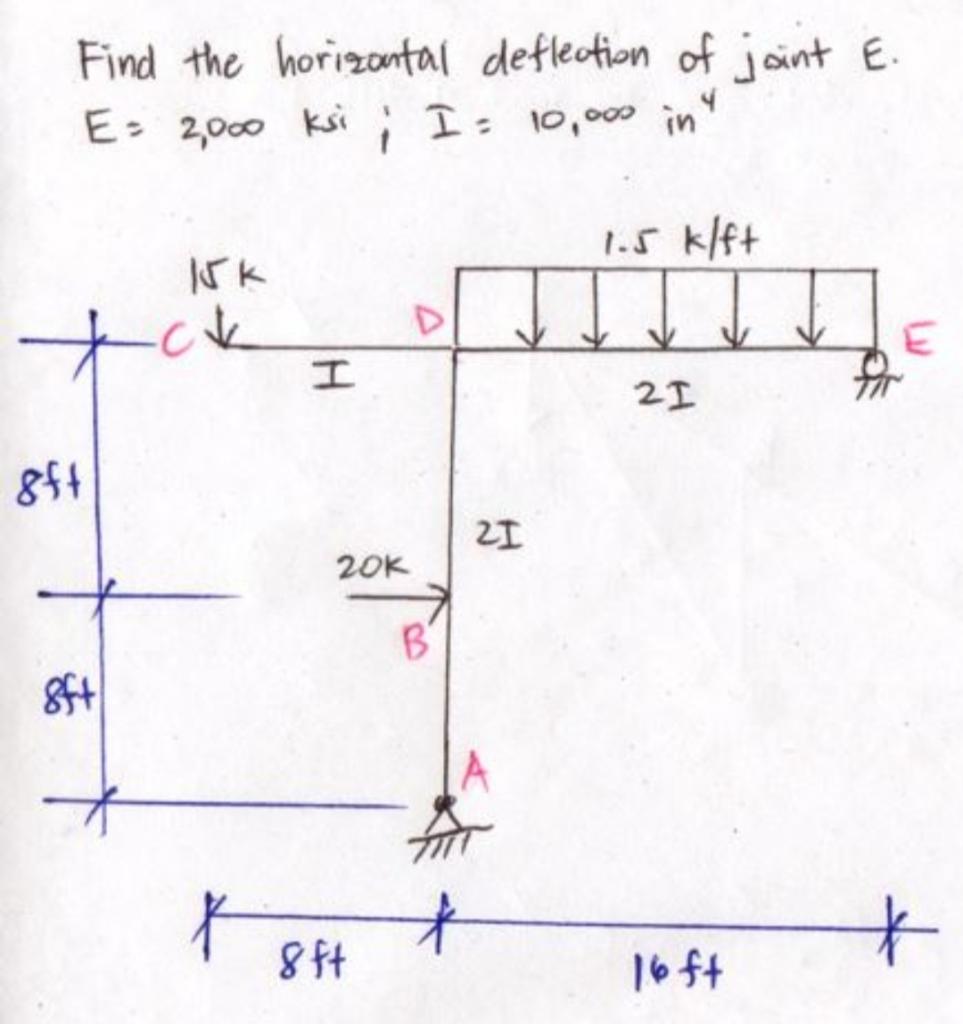 Find the horizontal deflection of joint E.
E = 2,000 ksi ; I = 10,000 in⁴
1.5 k/ft
15 K
C
D
E
I
2I
8ft
2I
20K
B
8ft
A
8 ft
16 ft